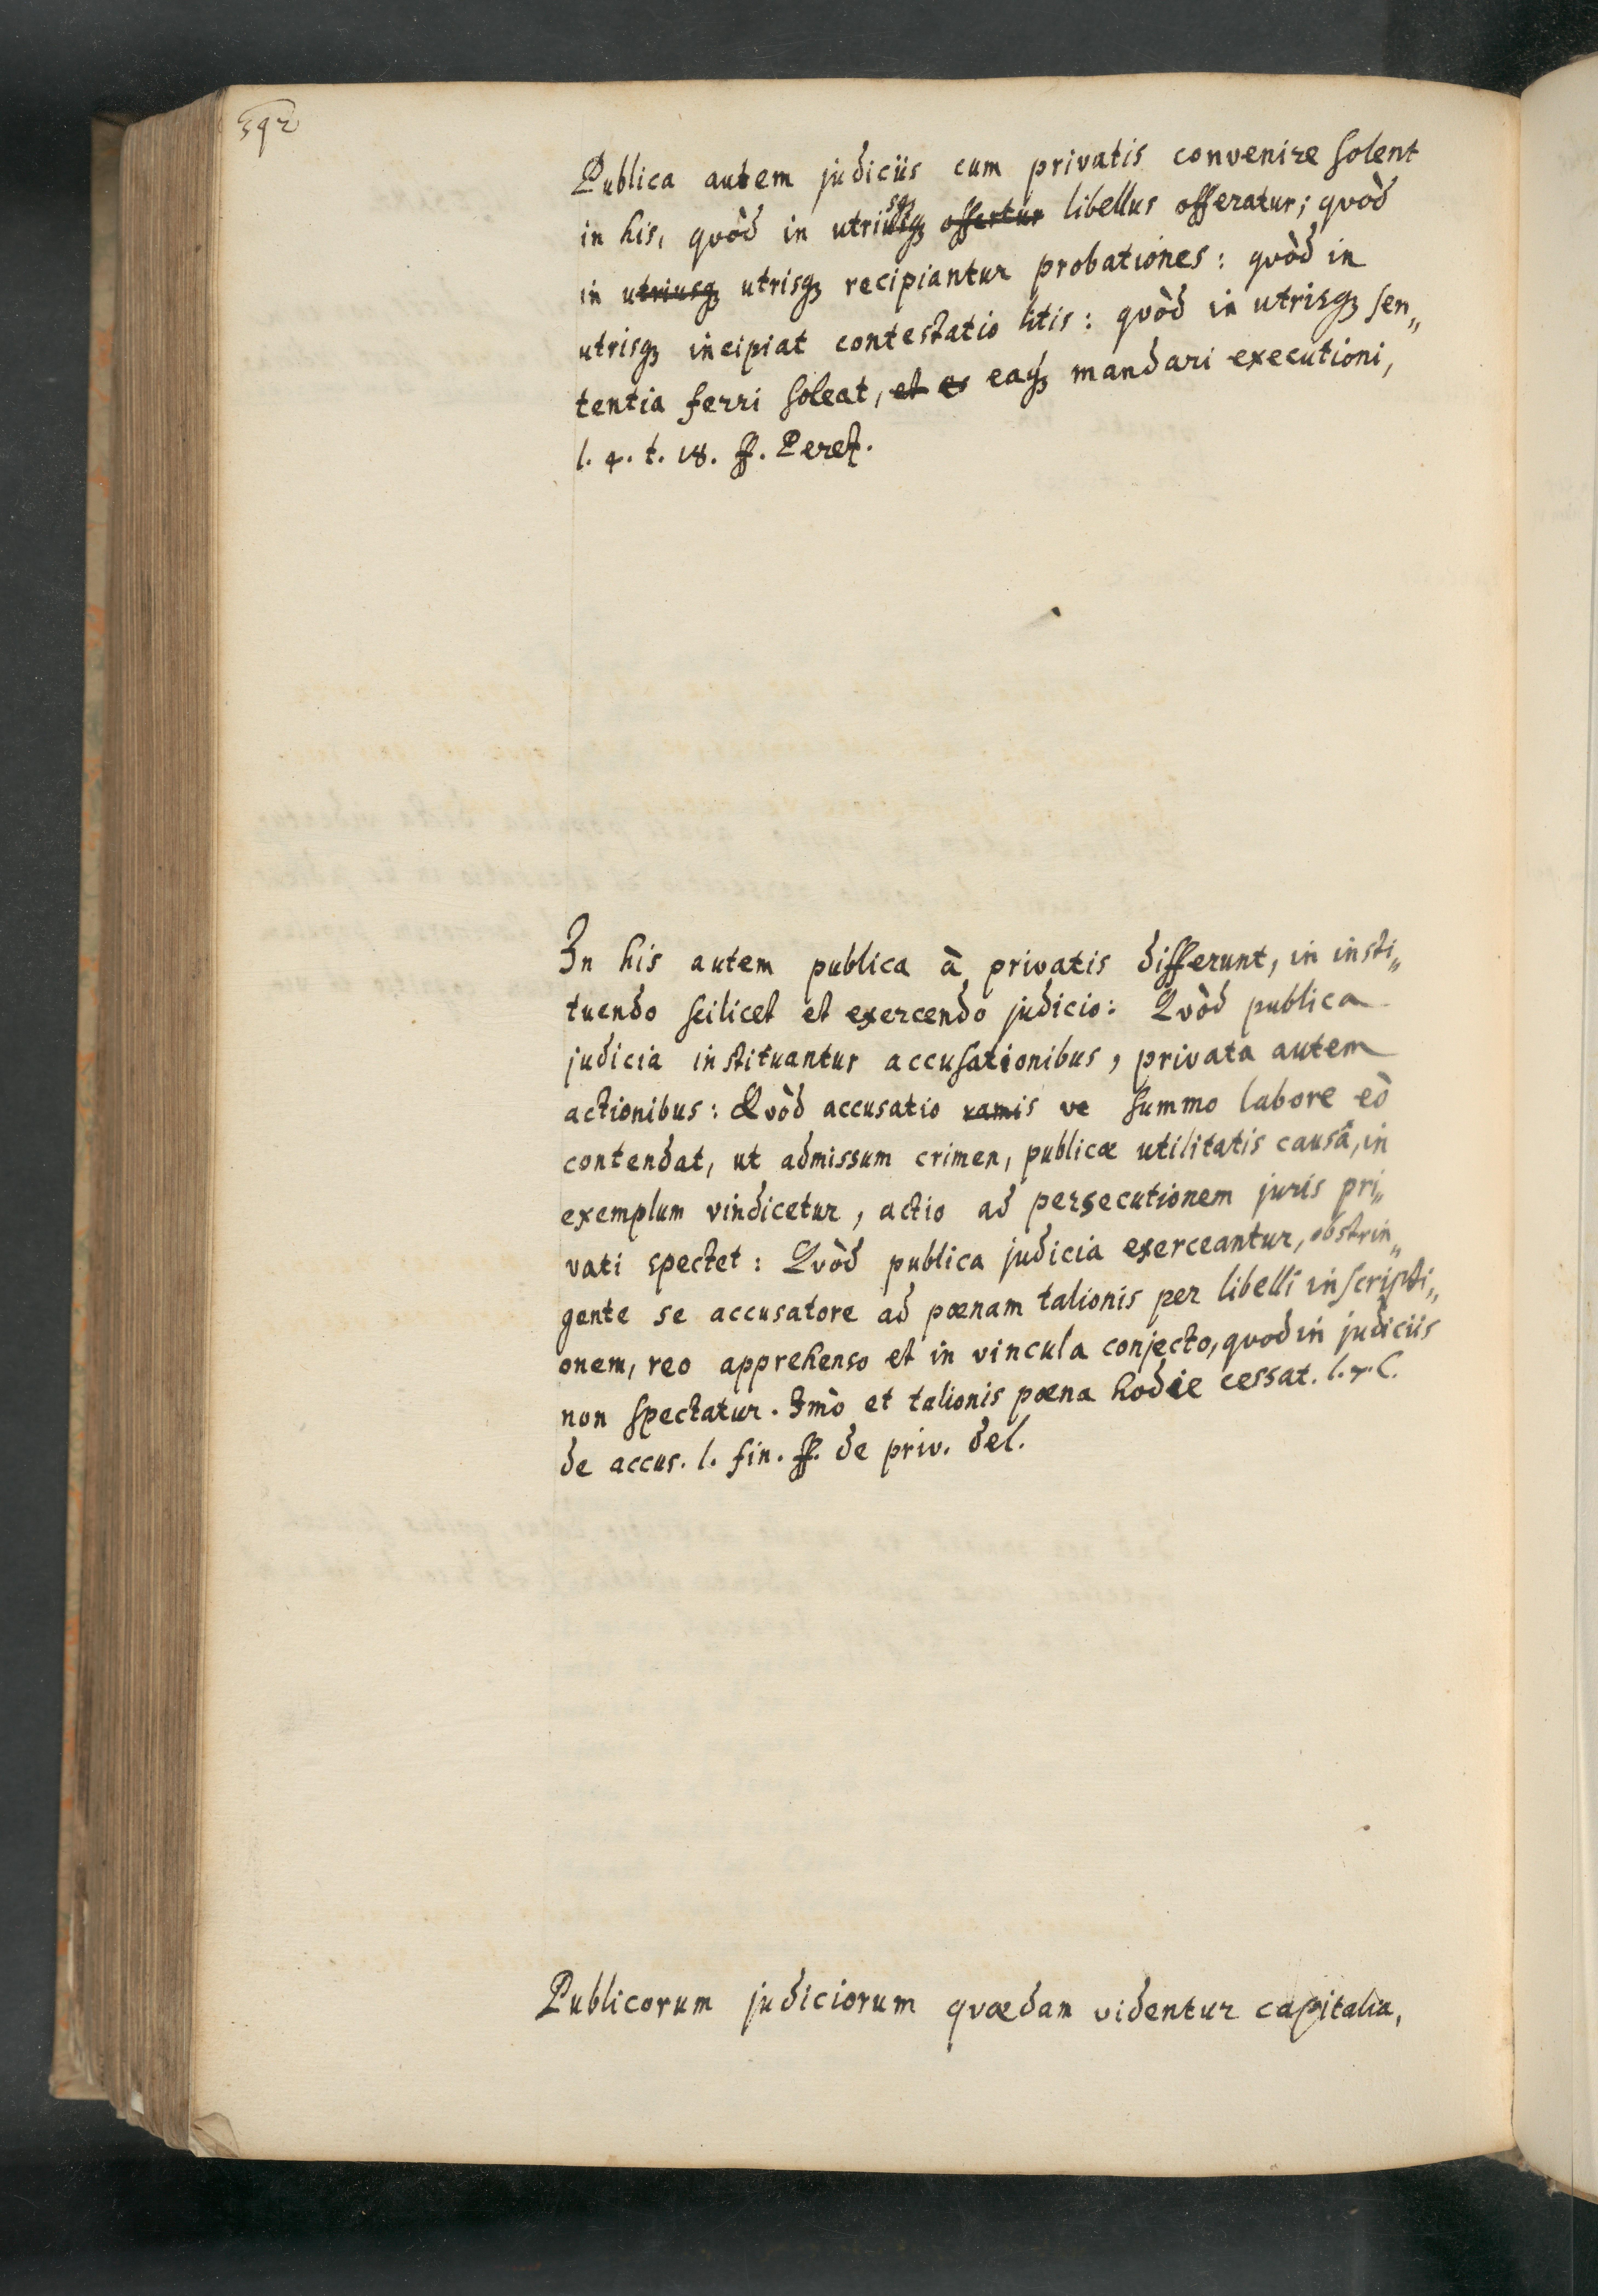 592
Publica autem judiciis cum privatis convenire solent
in his, quòd in utrisq; offertur libellus offeratur; quòd
in utriusq; utrisq; recipiantur probationes: quòd in
utrisq; incipiat contestatio litis: quòd in utrisq; sen„
tentia ferri soleat, et es eaq; mandari executioni,
l. 4. t. 18. ff. Perez.
In his autem publica à privatis differunt, in insti„
tuendo scilicet et exercendo judicio: Qvòd publica
judicia instituantur accusationibus, privata autem
actionibus: Qvòd accusatio ramis ve summo labore eò
contendat, ut admissum crimen, publicæ utilitatis causâ, in
exemplum vindicetur, actio ad persecutionem juris pri„
vati spectet: Qvòd publica judicia exerceantur, obstrin„
gente se accusatore ad pœnam talionis per libelli inscripti„
onem, reo apprehenso et in vincula conjecto, quod in judiciis
non spectatur. Imò et talionis pœna hodie cessat. l. 7. C.
de accus. l. fin. ff. de priv. del.
Publicorum judiciorum qvædam videntur capitalia,